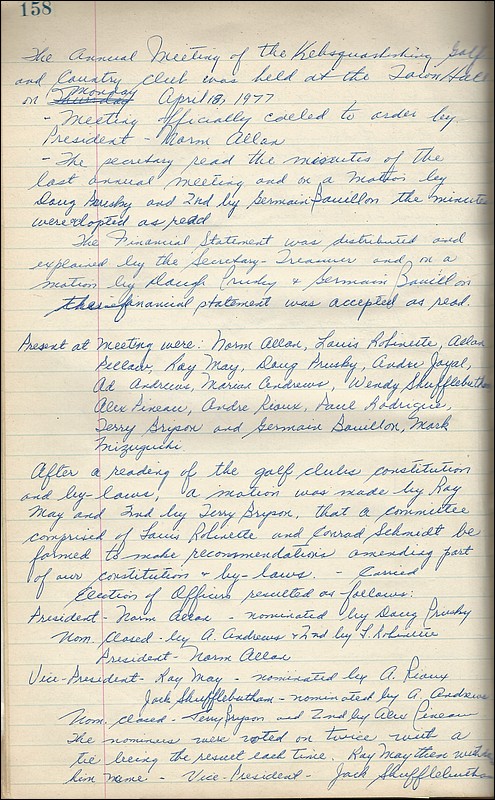 158
The Annual Meeting of the Kebsquasheshing Golf
and Country Club was held at the Town Hall
on Thursday Monday April 18, 1977
- Meeting officially called to order by
President - Norm Allan
- The secretary read the minutes of the
last annual meeting and on a motion by
Doug Prusky and 2nd by Germain Bouillon the minutes
were adopted as read.
The Financial Statement was distributed and
explained by the Secretary-Treasurer and on a
motion by Dough Prusky & Germain Bouillon
the financial statement was accepted as read.
Present at Meeting were: Norm Allan, Louis Robinette,
Ray May, Doug Prusky, Andre Joyal,
Ad Andrews, Marion Andrews, Wendy Shufflebotham
Alex Pineau, Andre Rioux, Paul Rodrigue,
Terry Bryson and Germain Bouillon, Mark
Mizuguchi.
After a reading of the golf clubs constitution
and by-laws, a motion was made by Ray
May and 2nd by Terry Bryson, that a committee
comprised of Louis Robinette and Conrad Schmidt be
formed to make recommendations amending part
of our constitution & by-laws. - Carried
Election of Officers resulted as follows:
President - Norm Allan - nominated by Doug Prusky
Nom. closed - by A. Andrews & 2nd by L. Robinette
President - Norm Allan
Vice-President - Ray May - nominated by A. Rioux
Jack Shufflebotham - nominated by A. Andrews
Nom. closed - Terry Bryson and 2nd by Alex Pineau
The nominees were voted on twice with a
tie being the result each time. Ray May then
him name - Vice-President - Jack Shufflebotham